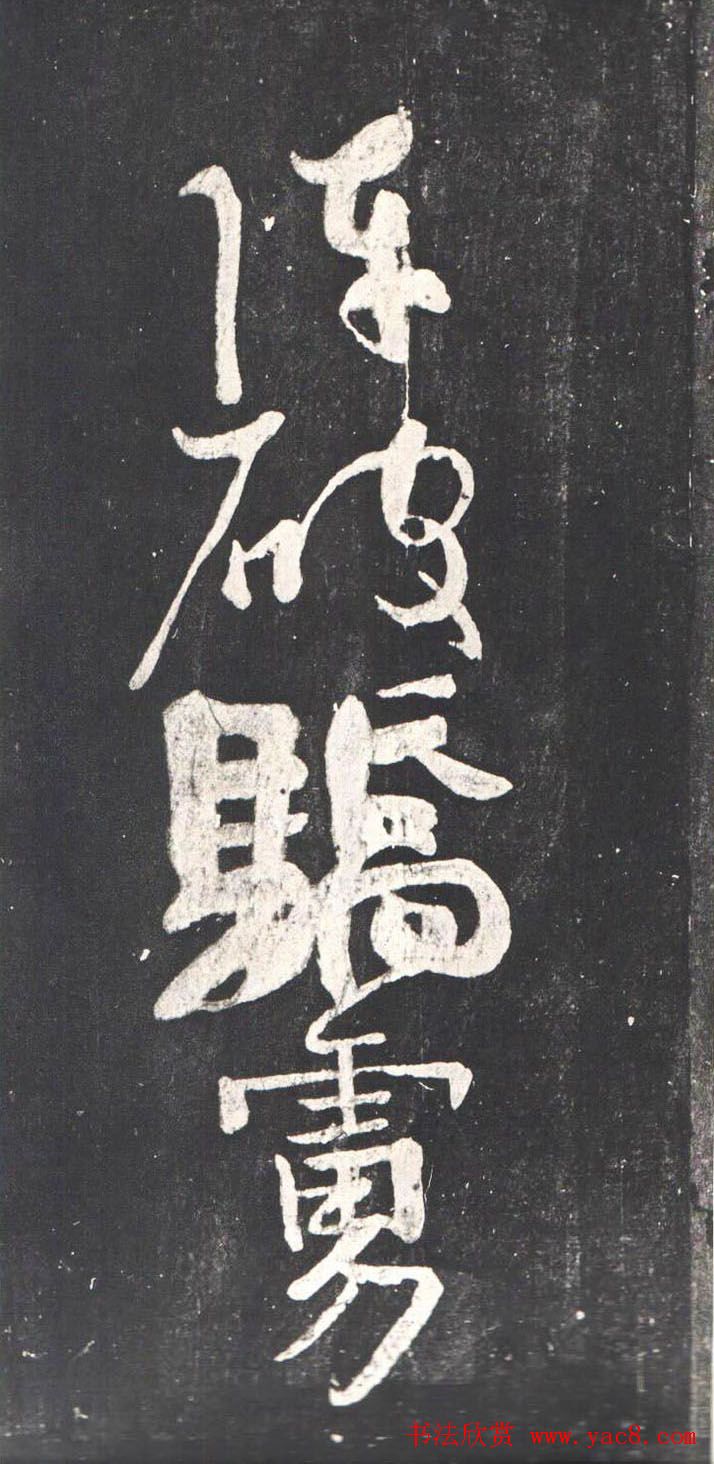 陣破驕虜
书法欣赏 www.yac8.com